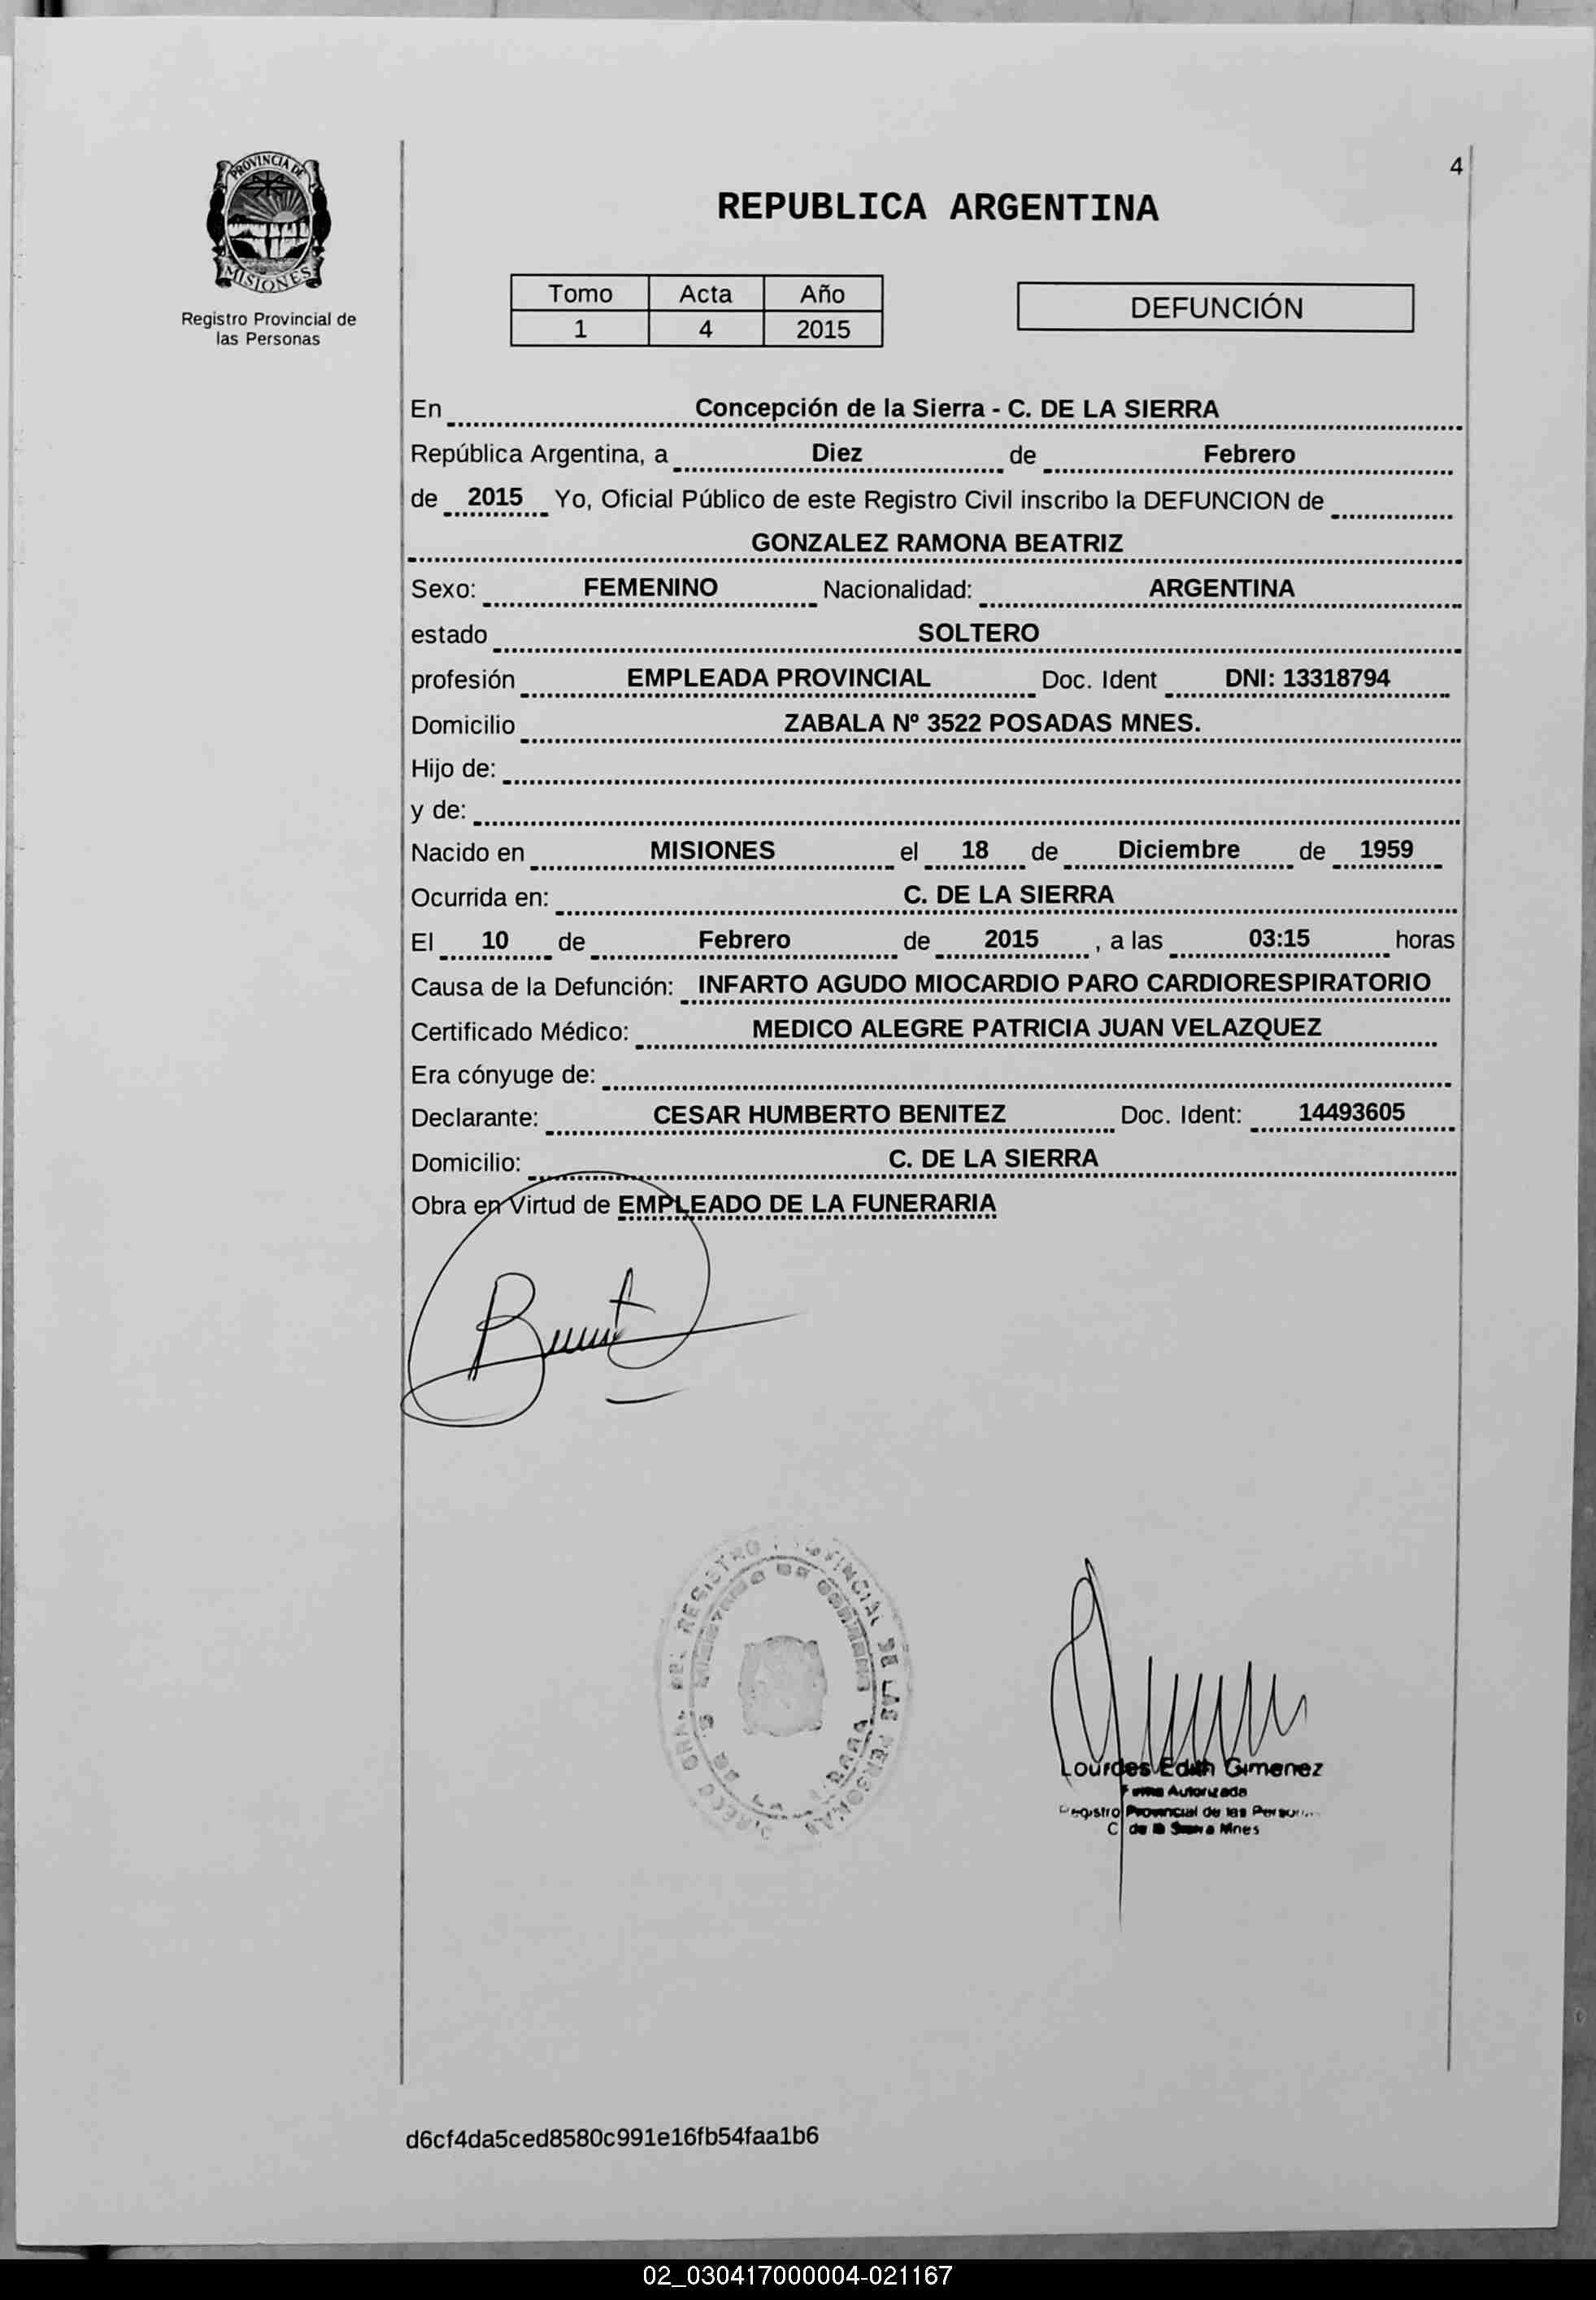 PROVINCIA DE
MISIONES
Registro Provincial de
las Personas
4
REPUBLICA ARGENTINA
Tomo Acta Año
1 4 2015
DEFUNCIÓN
En Concepción de la Sierra - C. DE LA SIERRA
República Argentina, a Diez de Febrero
de 2015 Yo, Oficial Público de este Registro Civil inscribo la DEFUNCION de
GONZALEZ RAMONA BEATRIZ
Sexo: FEMENINO Nacionalidad: ARGENTINA
estado SOLTERO
profesión EMPLEADA PROVINCIAL Doc. Ident DNI: 13318794
Domicilio ZABALA Nº 3522 POSADAS MNES.
Hijo de:
y de:
Nacido en MISIONES el 18 de Diciembre de 1959
Ocurrida en: C. DE LA SIERRA
El 10 de Febrero de 2015 , a las 03:15 horas
Causa de la Defunción: INFARTO AGUDO MIOCARDIO PARO CARDIORESPIRATORIO
Certificado Médico: MEDICO ALEGRE PATRICIA JUAN VELAZQUEZ
Era cónyuge de:
Declarante: CESAR HUMBERTO BENITEZ Doc. Ident: 14493605
Domicilio: C. DE LA SIERRA
Obra en Virtud de EMPLEADO DE LA FUNERARIA
REGISTRO PROVINCIAL DE LAS PERSONAS
Lourdes Edith Gimenez
Firma Autorizada
Registro Provincial de las
C de la Sierra Mnes
d6cf4da5ced8580c991e16fb54faa1b6
02_030417000004-021167